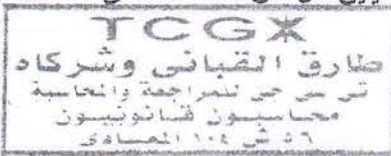 TCGX
طارق القبانى وشركاه
تى سى جى للمراجعة والمحاسبة
محاسبون قانونييون
٥٦ ش ١٠٤ المعادى